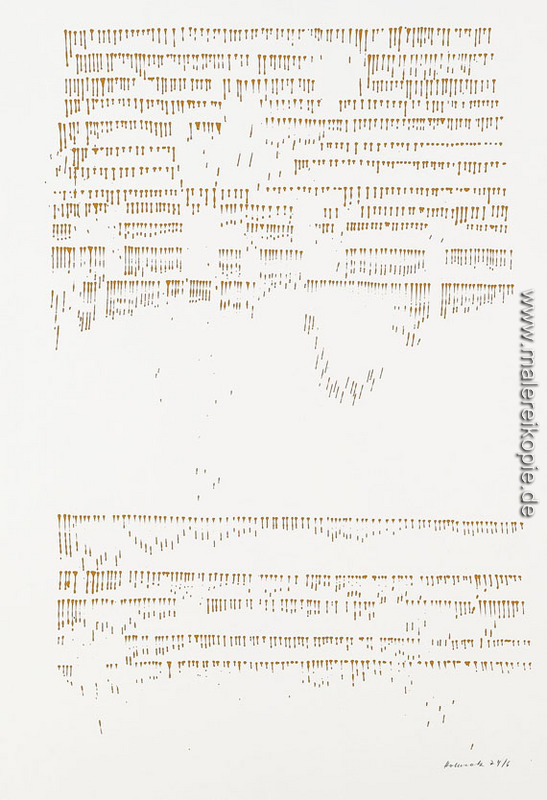 www.malereikopie.de
24/6